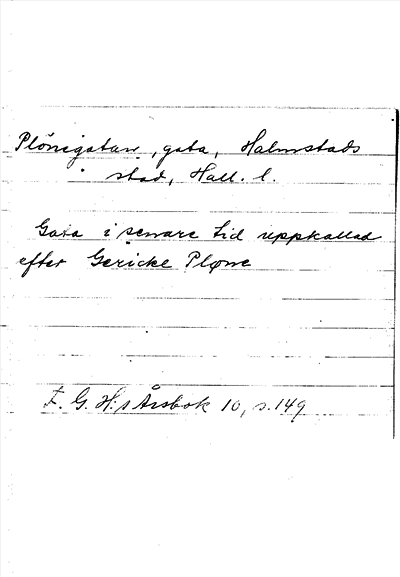 Plönegatan, gata, Halmstads
stad, Hall. l.
Gata i senare tid uppkallad
efter Gericke Pløne
F. G. H:s Årsbok 10, s. 149